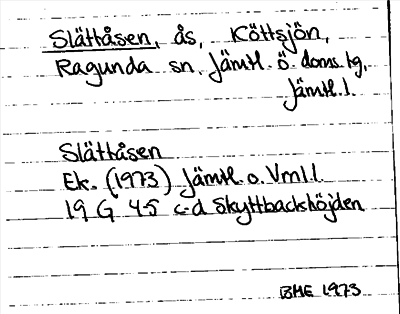 Slättåsen, ås, Köttsjön,
Ragunda sn. Jämtl. ö. doms.tg.
Jämtl.l.
Slättåsen
Ek. (1973) Jämtl. o. Vml.l.
19 G 4-5 c-d Skyttbackshöjden
BME 1973